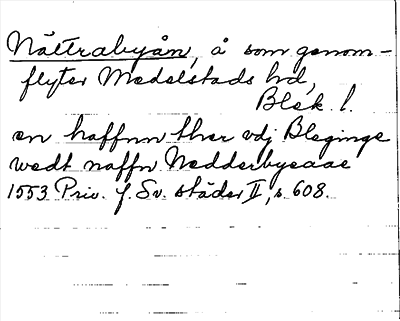 Nättrabyån, å som genom-
flyter Medelstads hd,
Blek. l.
en haffnn ther vdj Bleginge
wedt naffn Nedderbyeaae
1553 Priv. f. Sv. städer II, s. 608.